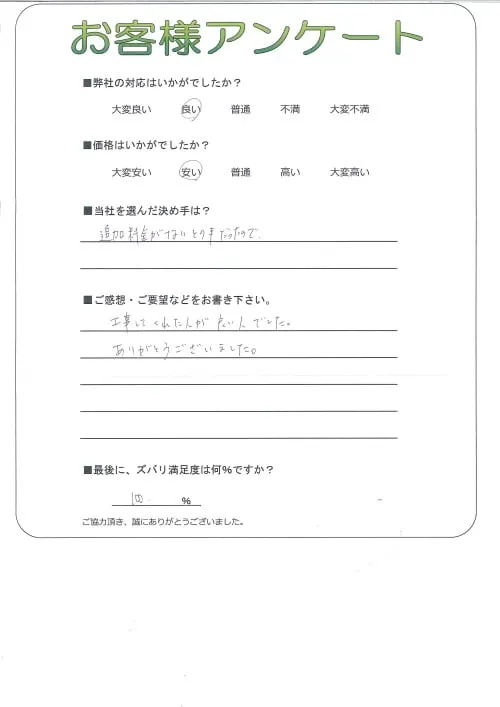 お客様アンケート
■弊社の対応はいかがでしたか？
大変良い 良い 普通 不満 大変不満
■価格はいかがでしたか？
大変安い 安い 普通 高い 大変高い
■当社を選んだ決め手は？
追加料金がないとの事だったので、
■ご感想・ご要望などをお書き下さい。
工事してくれた人が良い人でした。
ありがとうございました。
■最後に、ズバリ満足度は何%ですか？
100 %
ご協力頂き、誠にありがとうございました。